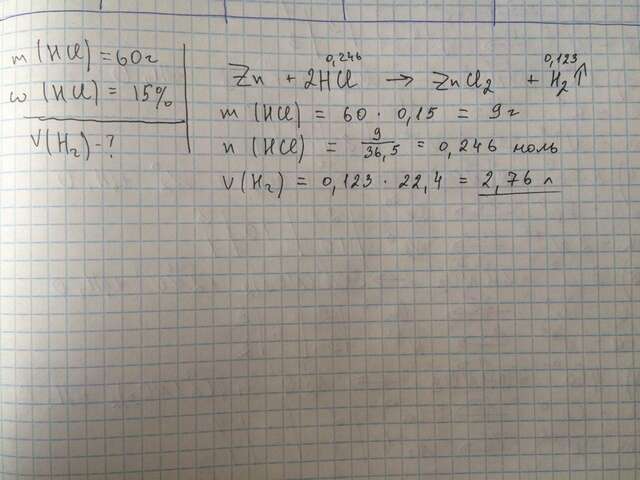 m (HCl) = 60 г
ω (HCl) = 15%
V(H₂) - ?
0,246 0,123
Zn + 2HCl → ZnCl₂ + H₂↑
m (HCl) = 60 · 0,15 = 9 г
n (HCl) = 9/36,5 = 0,246 моль
V(H₂) = 0,123 · 22,4 = 2,76 л